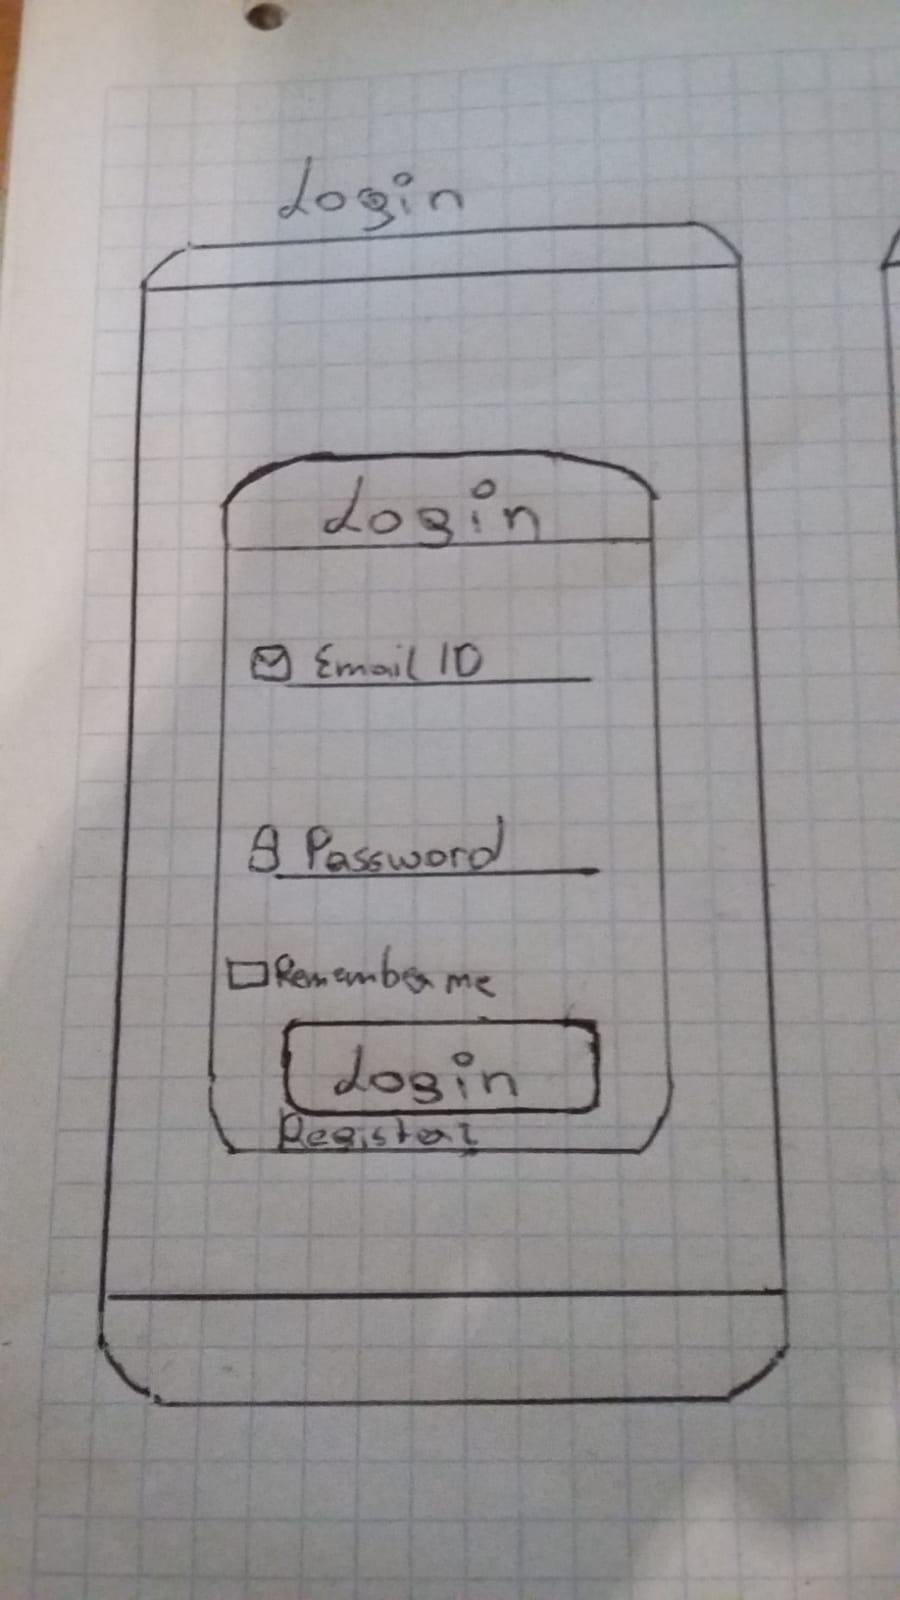 Login
Login
Email ID
Password
Remember me
Login
Register?